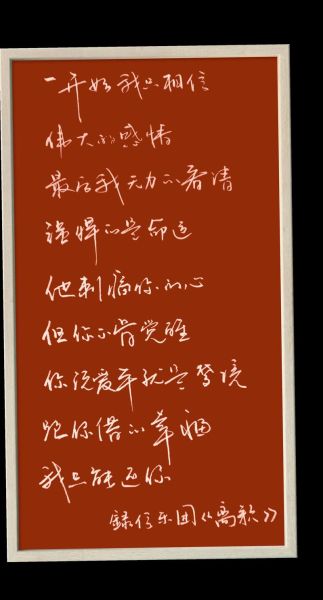 一开始我只相信
伟大的感情
最后我无力的看清
强悍的是命运
他刺痛你的心
但你不肯觉醒
你说爱本就是梦境
跟你借的幸福
我只能还你
録信乐团《离歌》